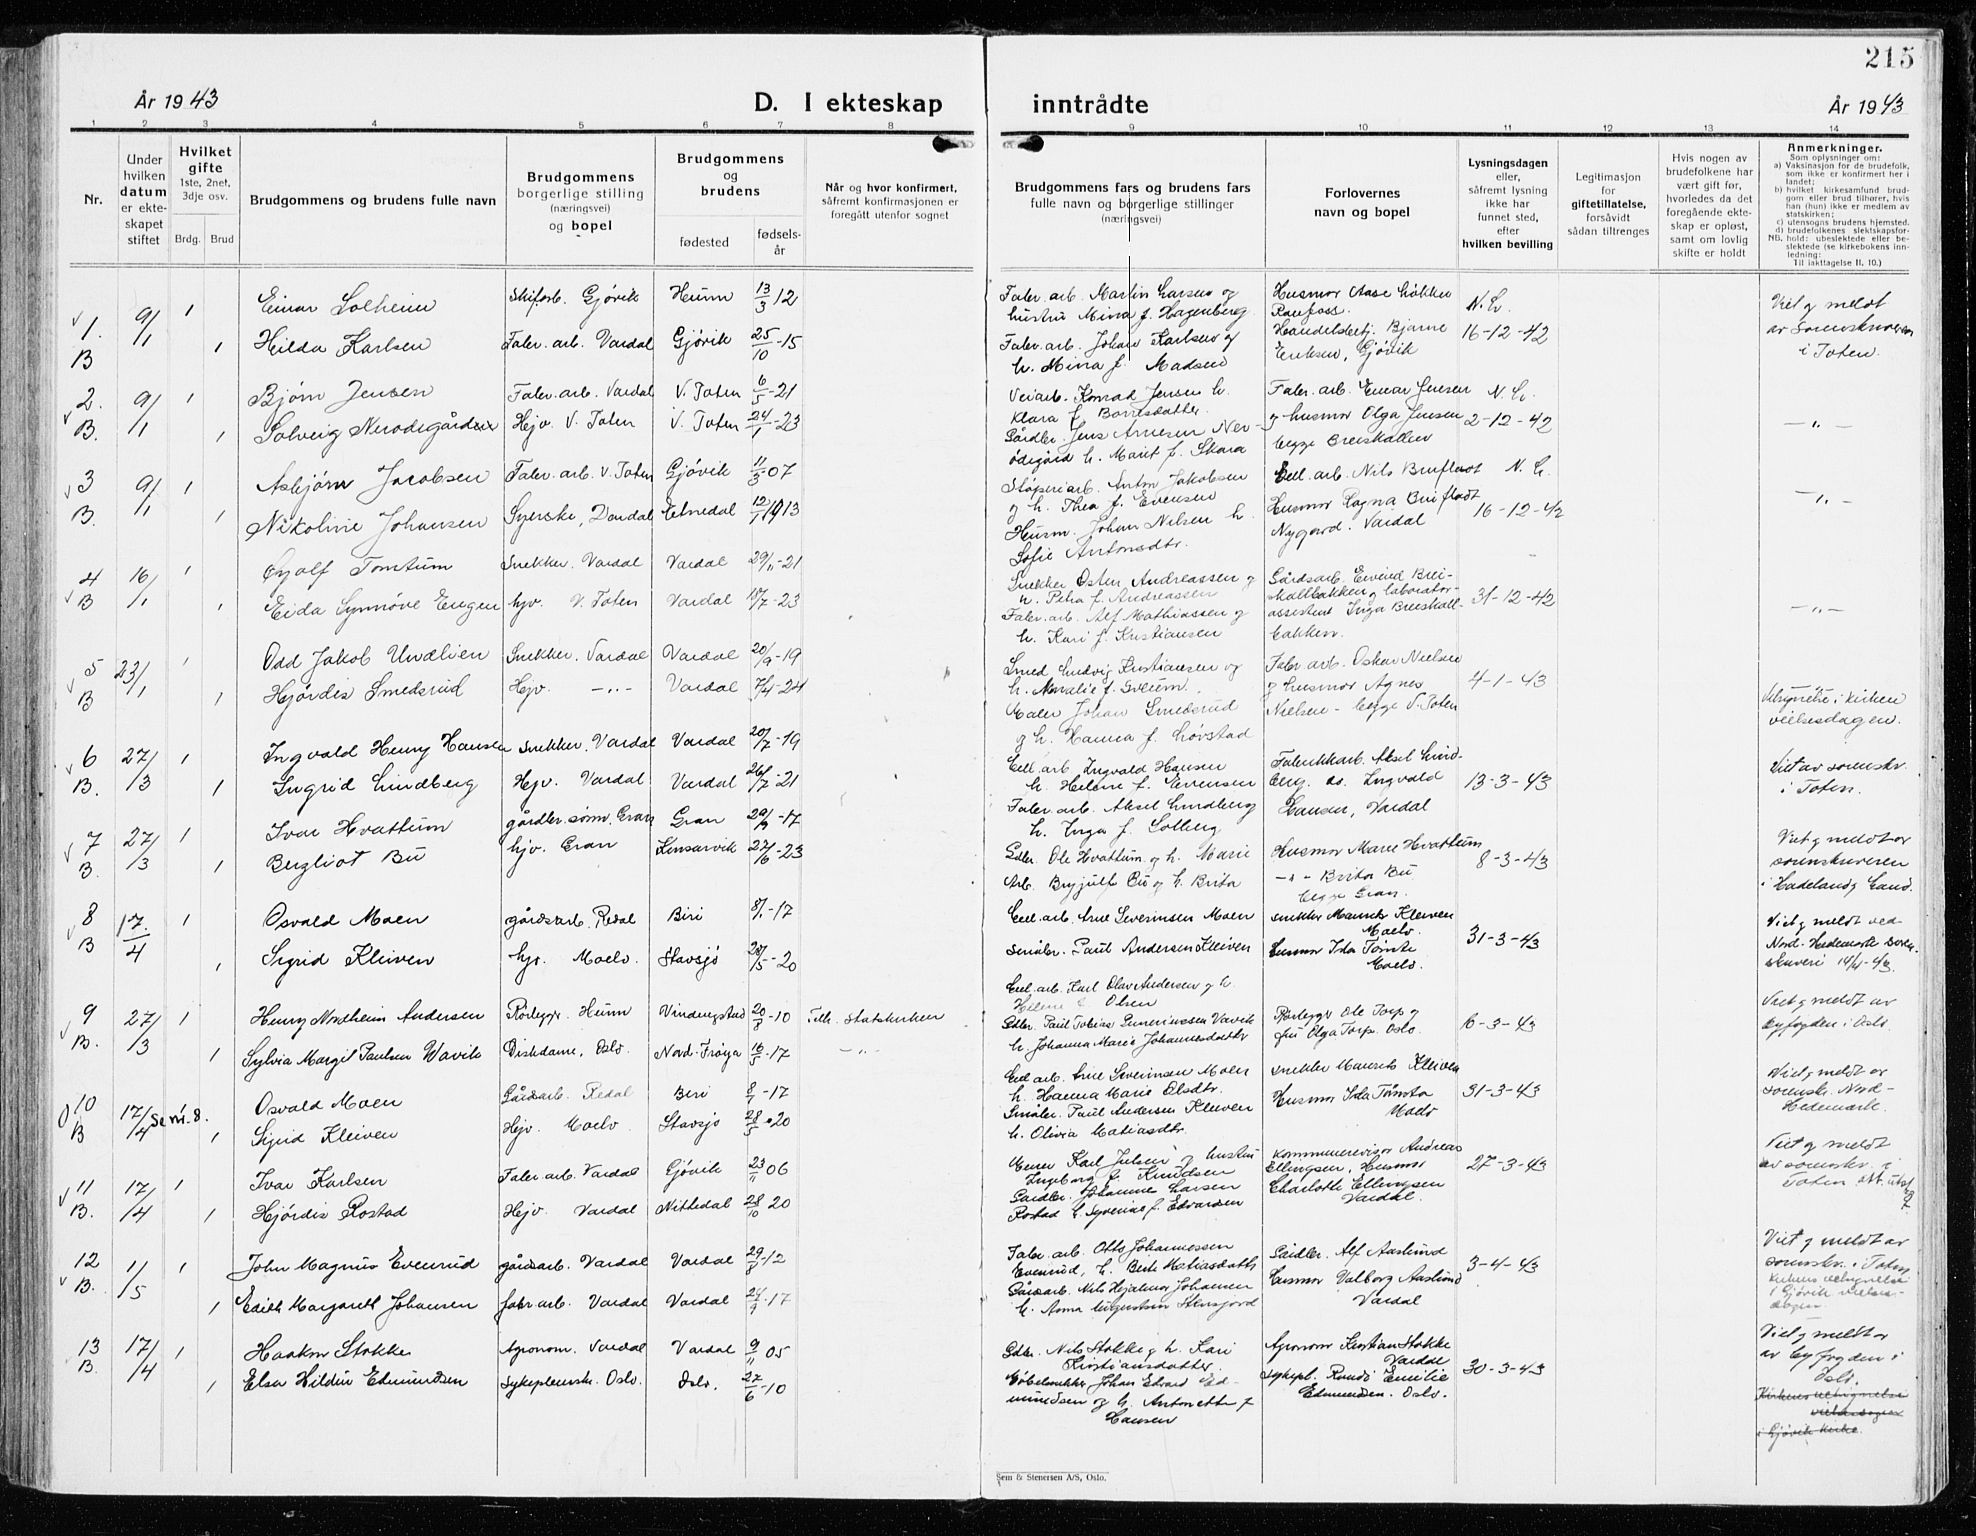 215
År 1943
D. I ekteskap
inntrådte
År 1943
1 2 3 4 5 6 7 8 9 10 11 12 13 14
Nr.
Under
hvilken
datum
er ekte-
skapet
stiftet
Hvilket
gifte
1ste, 2net,
3dje osv.
Brdg. Brud
Brudgommens og brudens fulle navn
Brudgommens
borgerlige stilling
(næringsvei)
og bopel
Brudgommens
og
brudens
fødested
fødsels-
år
Når og hvor konfirmert,
såfremt konfirmasjonen er
foregått utenfor sognet
Brudgommens fars og brudens fars
fulle navn og borgerlige stillinger
(næringsvei)
Forlovernes
navn og bopel
Lysningsdagen
eller,
såfremt lysning
ikke har
funnet sted,
efter
hvilken bevilling
Legitimasjon
for
giftetillatelse,
forsåvidt
sådan tiltrenges
Hvis nogen av
brudefolkene har
vært gift før,
hvorledes da det
foregående ekte-
skap er opløst,
samt om lovlig
skifte er holdt
Anmerkninger.
Som oplysninger om:
a) Vaksinasjon for de brudefolk,
som ikke er konfirmert her i
landet;
b) hvilket kirkesamfund brud-
gom eller brud tilhører, hvis
han (hun) ikke er medlem av
statskirken;
c) utensogns brudens hjemsted.
d) brudefolkenes slektskapsfor-
NB. hold: ubeslektede eller be-
slektede (se kirkebokens inn-
ledning:
Til iakttagelse II. 10.)
1. 9/1 1 Einar Solheim Gjøvik Hunn 13/3 12
Fabr. arb. Martin Larsen og
hustru Mina f. Hagenberg
Raufoss.
Viet g meldt
B 1 Hilda Karlsen Fabr. arb. Vardal Gjøvik 25/10-15
Fabr. arb. Johan Karlsen og
h. Mina f. Madsen
Handelsbetj. Bjarne
Eriksen, Gjøvik
16-12-42
i Toten.
2. 9/1 1 Bjørn Jensen Fabr. arb. Vardal V. Toten 6/5-21
Veiarb. Konrad Jensen h.
Klara f.
Fabr. arb. Einar Jensen
B. 1 Solveig Hejv. V. Toten V. Toten 24/1-23
Gårdbr. Jens Arnesen Ner-
ødegård h. Marit f. Skara
g husmor Olga Jensen
begge Breiskallen
2-12-42
— " —
3 9/1 1 Asbjørn Jacobsen Fabr. arb. V. Toten Gjøvik 07
Støperiarb. Anton Jakobsen
g h. Thea f. Evensen
Nils Bruflodt
B. 1 Nikoline Johansen Syerske, Etnedal 13
Husm. Johan Nilsen h.
Sofie Antonsdtr.
Husmor Ragna Bruflodt
Nygard. Vardal
16-12-42
— " —
4 16/1 1 Tomtum Snekker. Vardal Vardal 29/11-21
Snekker Osten Andreassen g
h. Petra f. Andreassen
Gårdsarb. Eivind Brei-
skallbakken g laborator-
B 1 Eida Synnøve Engen hjv. V. Toten Vardal 23
Fabr. arb. Alf Mathiassen g
h. Kari f. Kristiansen
assistent Inga Breiskall-
bakken.
31-12-42
— " —
5 23/1 1 Odd Jakob Undlien Snekker. Vardal Vardal 20/9-19
Smed Ludvig Kristiansen og
h. f.
Fabr arb. Oskar Nielsen
B 1 Hjørdis Smedsrud Hejv. — " — Vardal 7/4-24
Maler Johan Smedsrud
g h. Hanna f. Løvstad
g husmor Agnes
Nielsen - begge V. Toten
4-1-43
Velsignelse i kirken
vielsesdagen.
6 27/3 1 Ingvald Henry Hansen snekker. Vardal Vardal 20/7-19
Cell. arb. Ingvald Hansen
h. Helene f. Evensen
Fabrikkarb. Aksel Lind-
Viet av sorenskr.
B. 1 Ingrid Lindberg Hejv. Vardal Vardal 26/7-21
Fabr. arb. Aksel Lindberg
h. Inga f. Solberg
berg. Ingvald
Hansen, Vardal
13-3-43
i Toten.
7 27/3 1 Ivar Hvattum gårdbr. sønn. Gran Gran -17
Gdbr. Ole Hvattum. og h. Marie
Husmor Marie Hvattum
Viet g meldt av
sorenskriveren
B. 1 Bergliot Bu hjv. Gran Kinsarvik 23
Arb. Brynjulf Bu og h. Brita
— " — Brita Bu
begge Gran.
8-3-43
i Hadeland g Land.
8 17./4 1 Osvald Moen gårdsarb. Redal Biri 8/1-17
Cell. arb. Arne Severinsen Moen
snekker Maurits Kleiven
Moelv.
Viet g meldt ved
B 1 Sigrid Kleiven hjv. Moelv. Stavsjø 28/5-20
Småbr. Paul Andersen Kleiven
Husmor Ida Tømte
Moelv.
31-3-43
Nord-Hedemark soren-
skriveri 14/4-43.
9 27/3 1 Henry Andersen Rørlegger. Hunn 20/8-10 Tilh. statskirken
Cell. arb. Karl Olav Andersen g h.
Helene f. Olsen
Rørlegger Ole Torp g
fru Olga Torp. Oslo.
6-3-43
Viet g meldt av
byfogden i Oslo.
B. 1 Sylvia Margit Paulsen Wavik Diskdame, Oslo. Nord-Frøya 16/5-17 — " —
h. Johanna Marie Johannesdatter
10 17/4 Se nr. 8. Osvald Moen Gårdsarb. Redal Biri 8/1-17
Cell arb. Arne Severinsen Moen
h. Hanna Marie Olsdtr.
snekker Maurits Kleiven
Viet g meldt av
sorenskr. Nord-
B 1 Sigrid Kleiven Hejv. Moelv Stavsjø 28/5-20
Småbr. Paul Andersen Kleiven
h. Olivia Matiasdtr.
Husmor Ida Tømte
Moelv
31-3-43
Hedemark.
11 17/4 1 Ivar Karlsen Fabr. arb. Vardal Gjøvik 23/11 06
Karl Julsen g hustru
Ingeborg f. Knudsen
Kommunerevisor Andreas
Ellingsen, Husmor
27-3-43
Viet g meldt
av sorenskr. i
B. 1 Hjørdis Rostad Hejv. Vardal Nittedal 28/10 20
Gårdbr. Johannes Larsen
Rostad h. Syverine f. Edvardsen
Charlotte Ellingsen
Vardal.
Toten
12 1/5 1 John Magnus Evenrud gårdsarb. Vardal Vardal 29/8-12
Fabr. arb. Otto Johannessen
Evenrud, h. Berte Matiasdatter
Gårdbr. Alf Aaslund
3-4-43
Viet g meldt av
sorenskr. i Toten
B. 1 Edith Margareth Johansen fabr arb. Vardal Vardal 17
Gårdsarb. Nils Hjalmar Johansen
h. Anna Augustine Stensjord
Husmor Valborg Aaslund
Vardal
Kirkens velsignelse
i Gjøvik vielses-
dagen
13 17/4 1 Haakon Stokke Agronom. Vardal Vardal 9/11 05
Gdbr. Nils Stokke g h. Kari
Kristiansdatter.
Agronom Kristian Stokke
Vardal
Viet g meldt av
av byfogden i
Oslo.
B. 1 Elsa Hildur Edmundsen Sykepleiersk. Oslo. Oslo. 27/6-10
Møbelsnekker Johan Edvard Ed-
mundsen og h. Antonette f
Hansen
Sykepl. Randi Emilie
Edmundsen. Oslo.
30-3-43
Kirkens velsignelse
vielsesdagen
i Gjøvik kirke.
Sem & Stenersen A/S, Oslo.